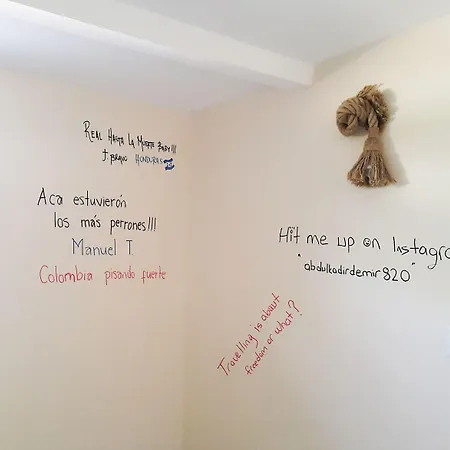 REAL HASTA LA MUERTE BABY!!!
J. BRAVO HONDURAS
Aca estuvierón
los más perrones!!!
Manuel T.
Colombia pisando fuerte
Hit me up on Instagra
"abdulkadirdemir820"
Travelling is about
freedom or what?